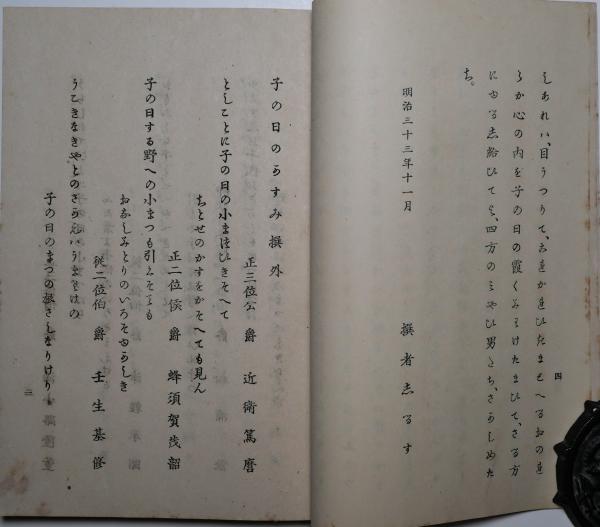 しあれハ、目うつりて、
らか心の内を子の日の霞くみわけたまひて、さる方
にゆるし給ひてよ、四方のミやひ男たち、さらしめた
ち。
明治三十三年十一月
撰者しるす
四
子の日のうすみ撰外
正三位公爵 近衛篤麿
としことに子の日の小まつひきそへて
ちとせのかすをかそへても見ん
正二位侯爵 蜂須賀茂韶
子の日する野への小まつも引
おなしみとりのいろそゆかしき
従二位伯爵 壬生基修
うこきなきやとの
子の日のまつの根さしなりけり